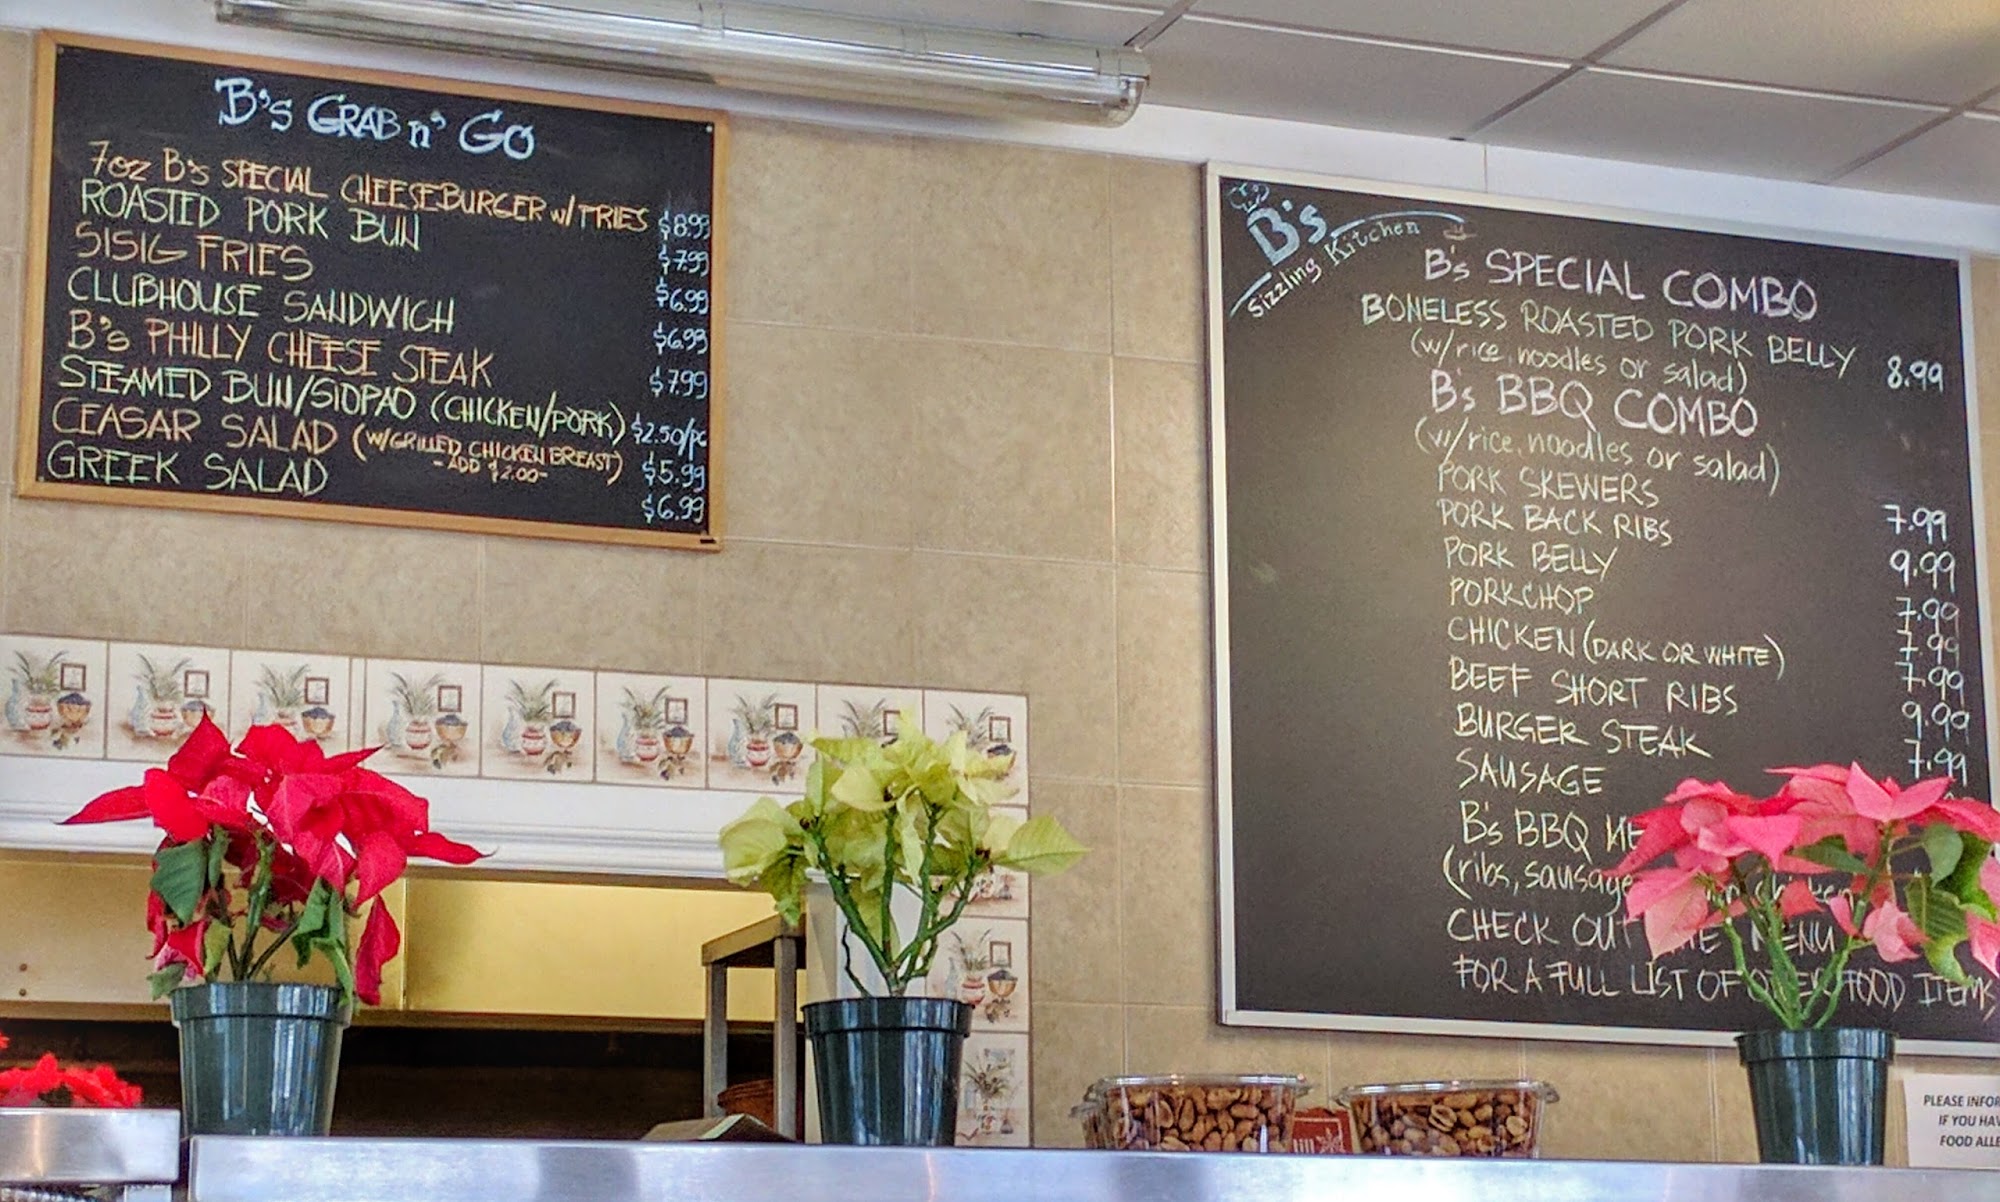 B's GRAB n' GO
7oz B's SPECIAL CHEESEBURGER w/ FRIES $8.99
ROASTED PORK BUN $7.99
SISIG FRIES $6.99
CLUBHOUSE SANDWICH $6.99
B's PHILLY CHEESE STEAK $7.99
STEAMED BUN/SIOPAO (CHICKEN/PORK) $2.50/pc
CEASAR SALAD (W/GRILLED CHICKEN BREAST) $5.99
- ADD $2.00-
GREEK SALAD $6.99
B's
Sizzling Kitchen
B's SPECIAL COMBO
BONELESS ROASTED PORK BELLY 8.99
(w/rice, noodles or salad)
B's BBQ COMBO
(w/rice, noodles or salad)
PORK SKEWERS 7.99
PORK BACK RIBS 9.99
PORK BELLY 7.99
PORKCHOP 7.99
CHICKEN (DARK OR WHITE) 7.99
BEEF SHORT RIBS 9.99
BURGER STEAK 7.99
SAUSAGE
B's BBQ
(ribs, sausage
CHECK OUT MENU
FOR A FULL LIST OF OTHER FOOD ITEMS
PLEASE INFOR
IF YOU HAV
FOOD ALLE